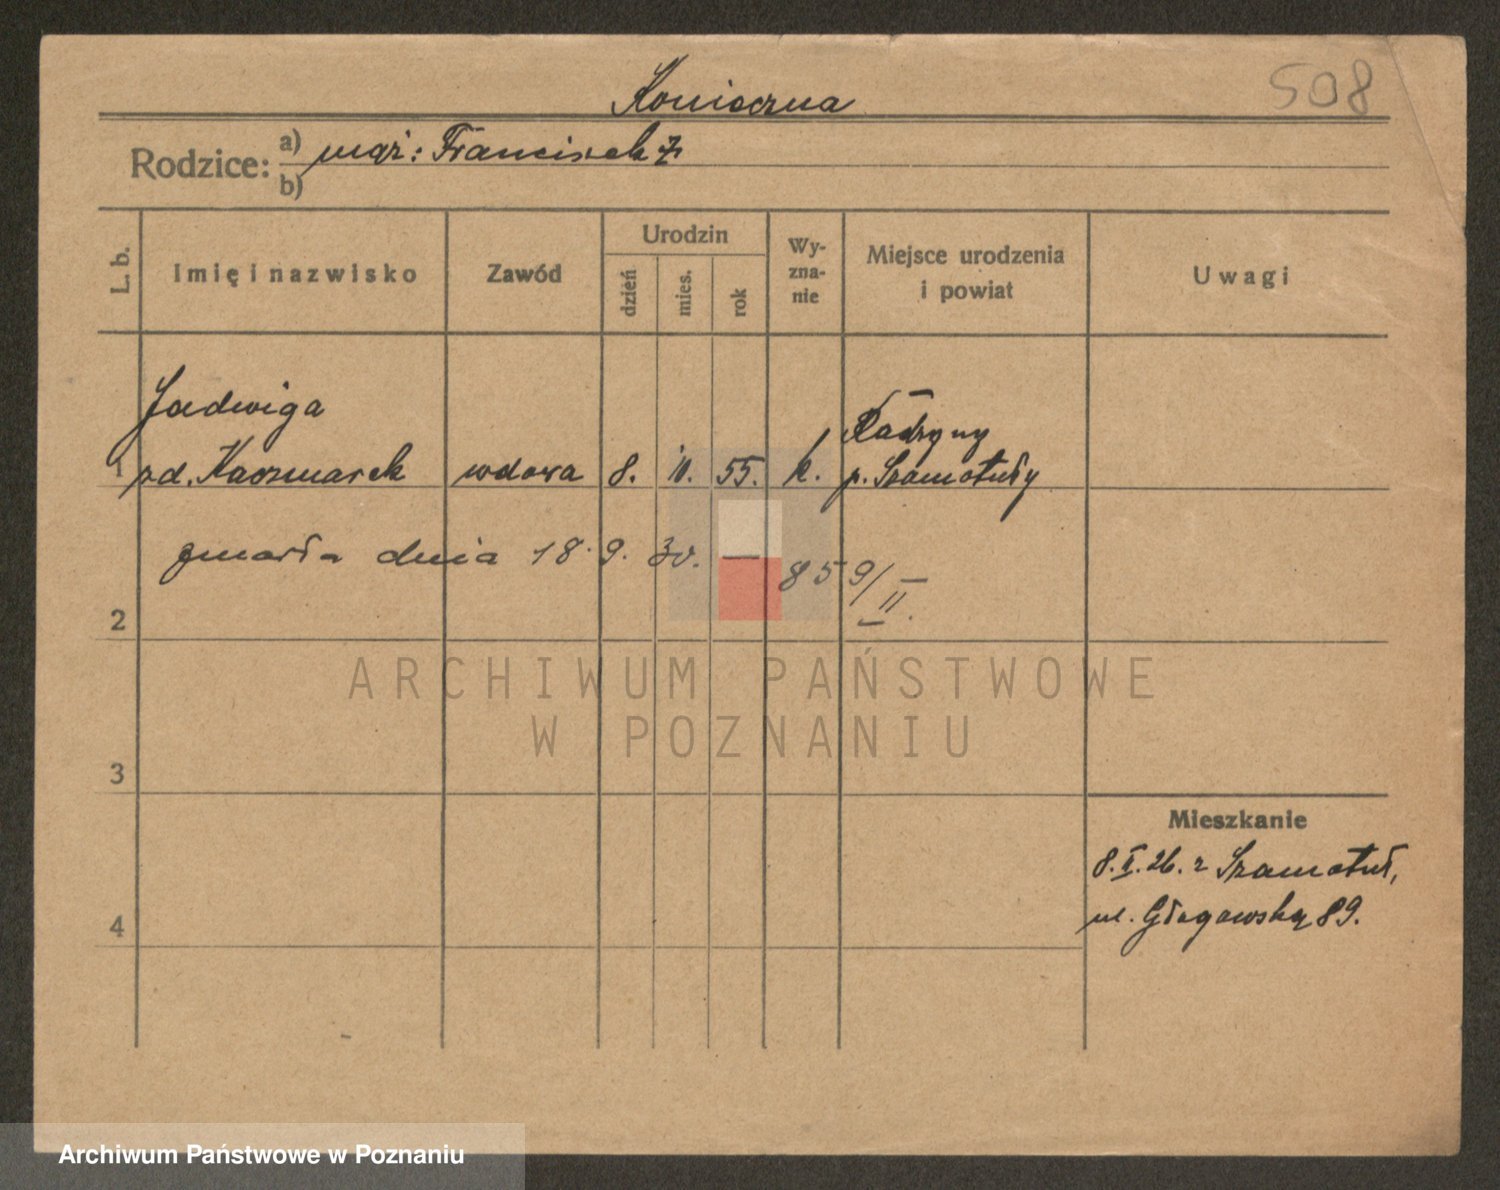 508
Konieczna
Rodzice: a) mąż: Franciszek
b)
L. b. Imię i nazwisko Zawód Urodzin dzień mies. rok Wy-zna-nie Miejsce urodzenia i powiat Uwagi
Jadwiga
1 zd. Kaczmarek wdowa 8. 10. 55. k.
p. Szamotuły
zmarła dnia 18. 9. 30. — 859/II.
2
ARCHIWUM PAŃSTWOWE
W POZNANIU
3
Mieszkanie
8. II. 26. z Szamotuł,
ul. Głogowska 89.
4
Archiwum Państwowe w Poznaniu